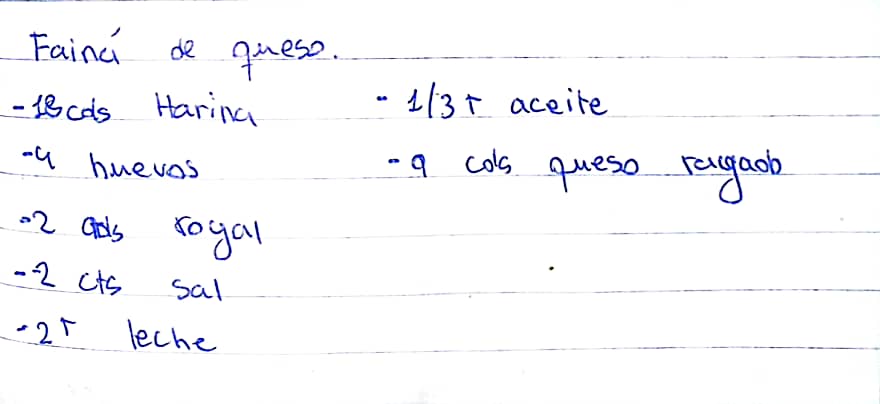 Fainá de queso.
-18 cds Harina
-4 huevos
-2 cds royal
-2 cts sal
-2 T leche
- 1/3 T aceite
-9 cds queso rayado